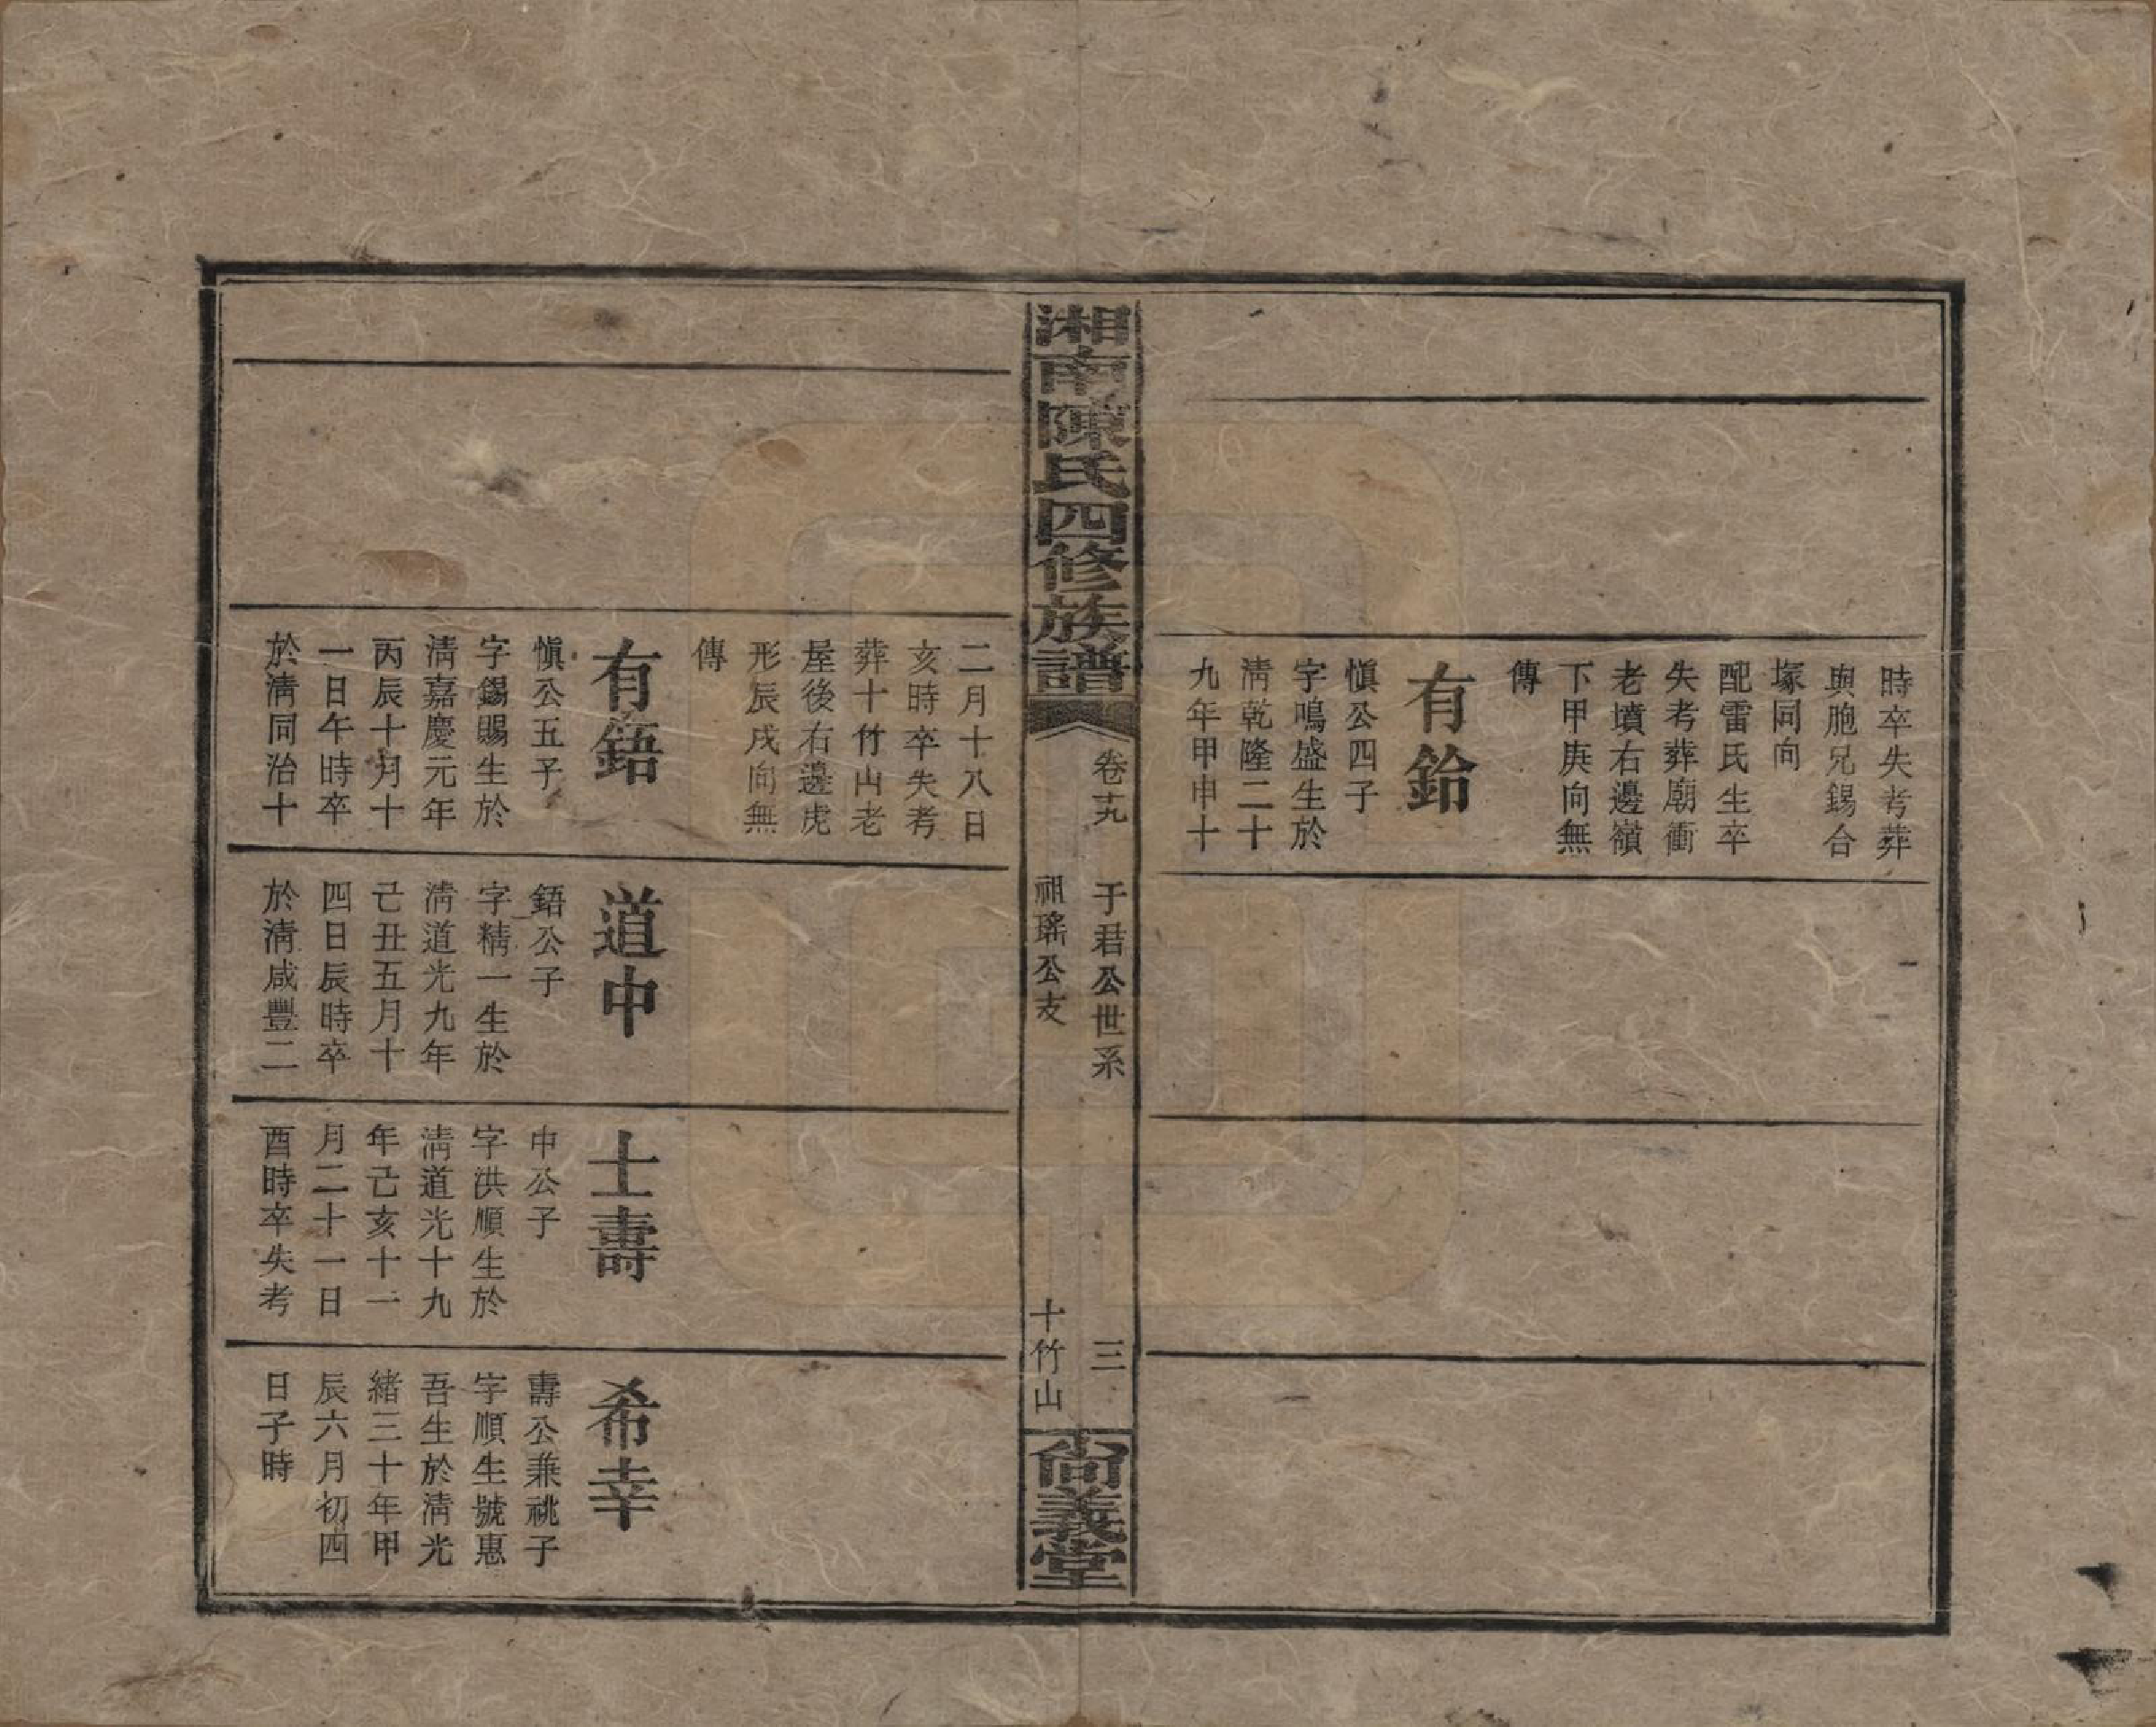 時卒失考葬
與胞兄錫合
塚同向
配雷氏生卒
失考葬廟衝
老墳右邊嶺
下甲庚向無
傳
有鈴
愼公四子
字鳴盛生於
淸乾隆二十
九年甲申十
湘南陳氏四修族譜
卷十九
于君公世系
三
祖瑤公支
十竹山
尙義堂
二月十八日
亥時卒失考
葬十竹山老
屋後右邊虎
形辰戌向無
傳
有鋙
愼公五子
字錫賜生於
淸嘉慶元年
丙辰十月十
一日午時卒
於淸同治十
道中
鋙公子
字精一生於
淸道光九年
己丑五月十
四日辰時卒
於淸咸豐二
士壽
中公子
字洪順生於
淸道光十九
年己亥十一
月二十一日
酉時卒失考
希幸
壽公兼祧子
字順生號惠
吾生於淸光
緒三十年甲
辰六月初四
日子時